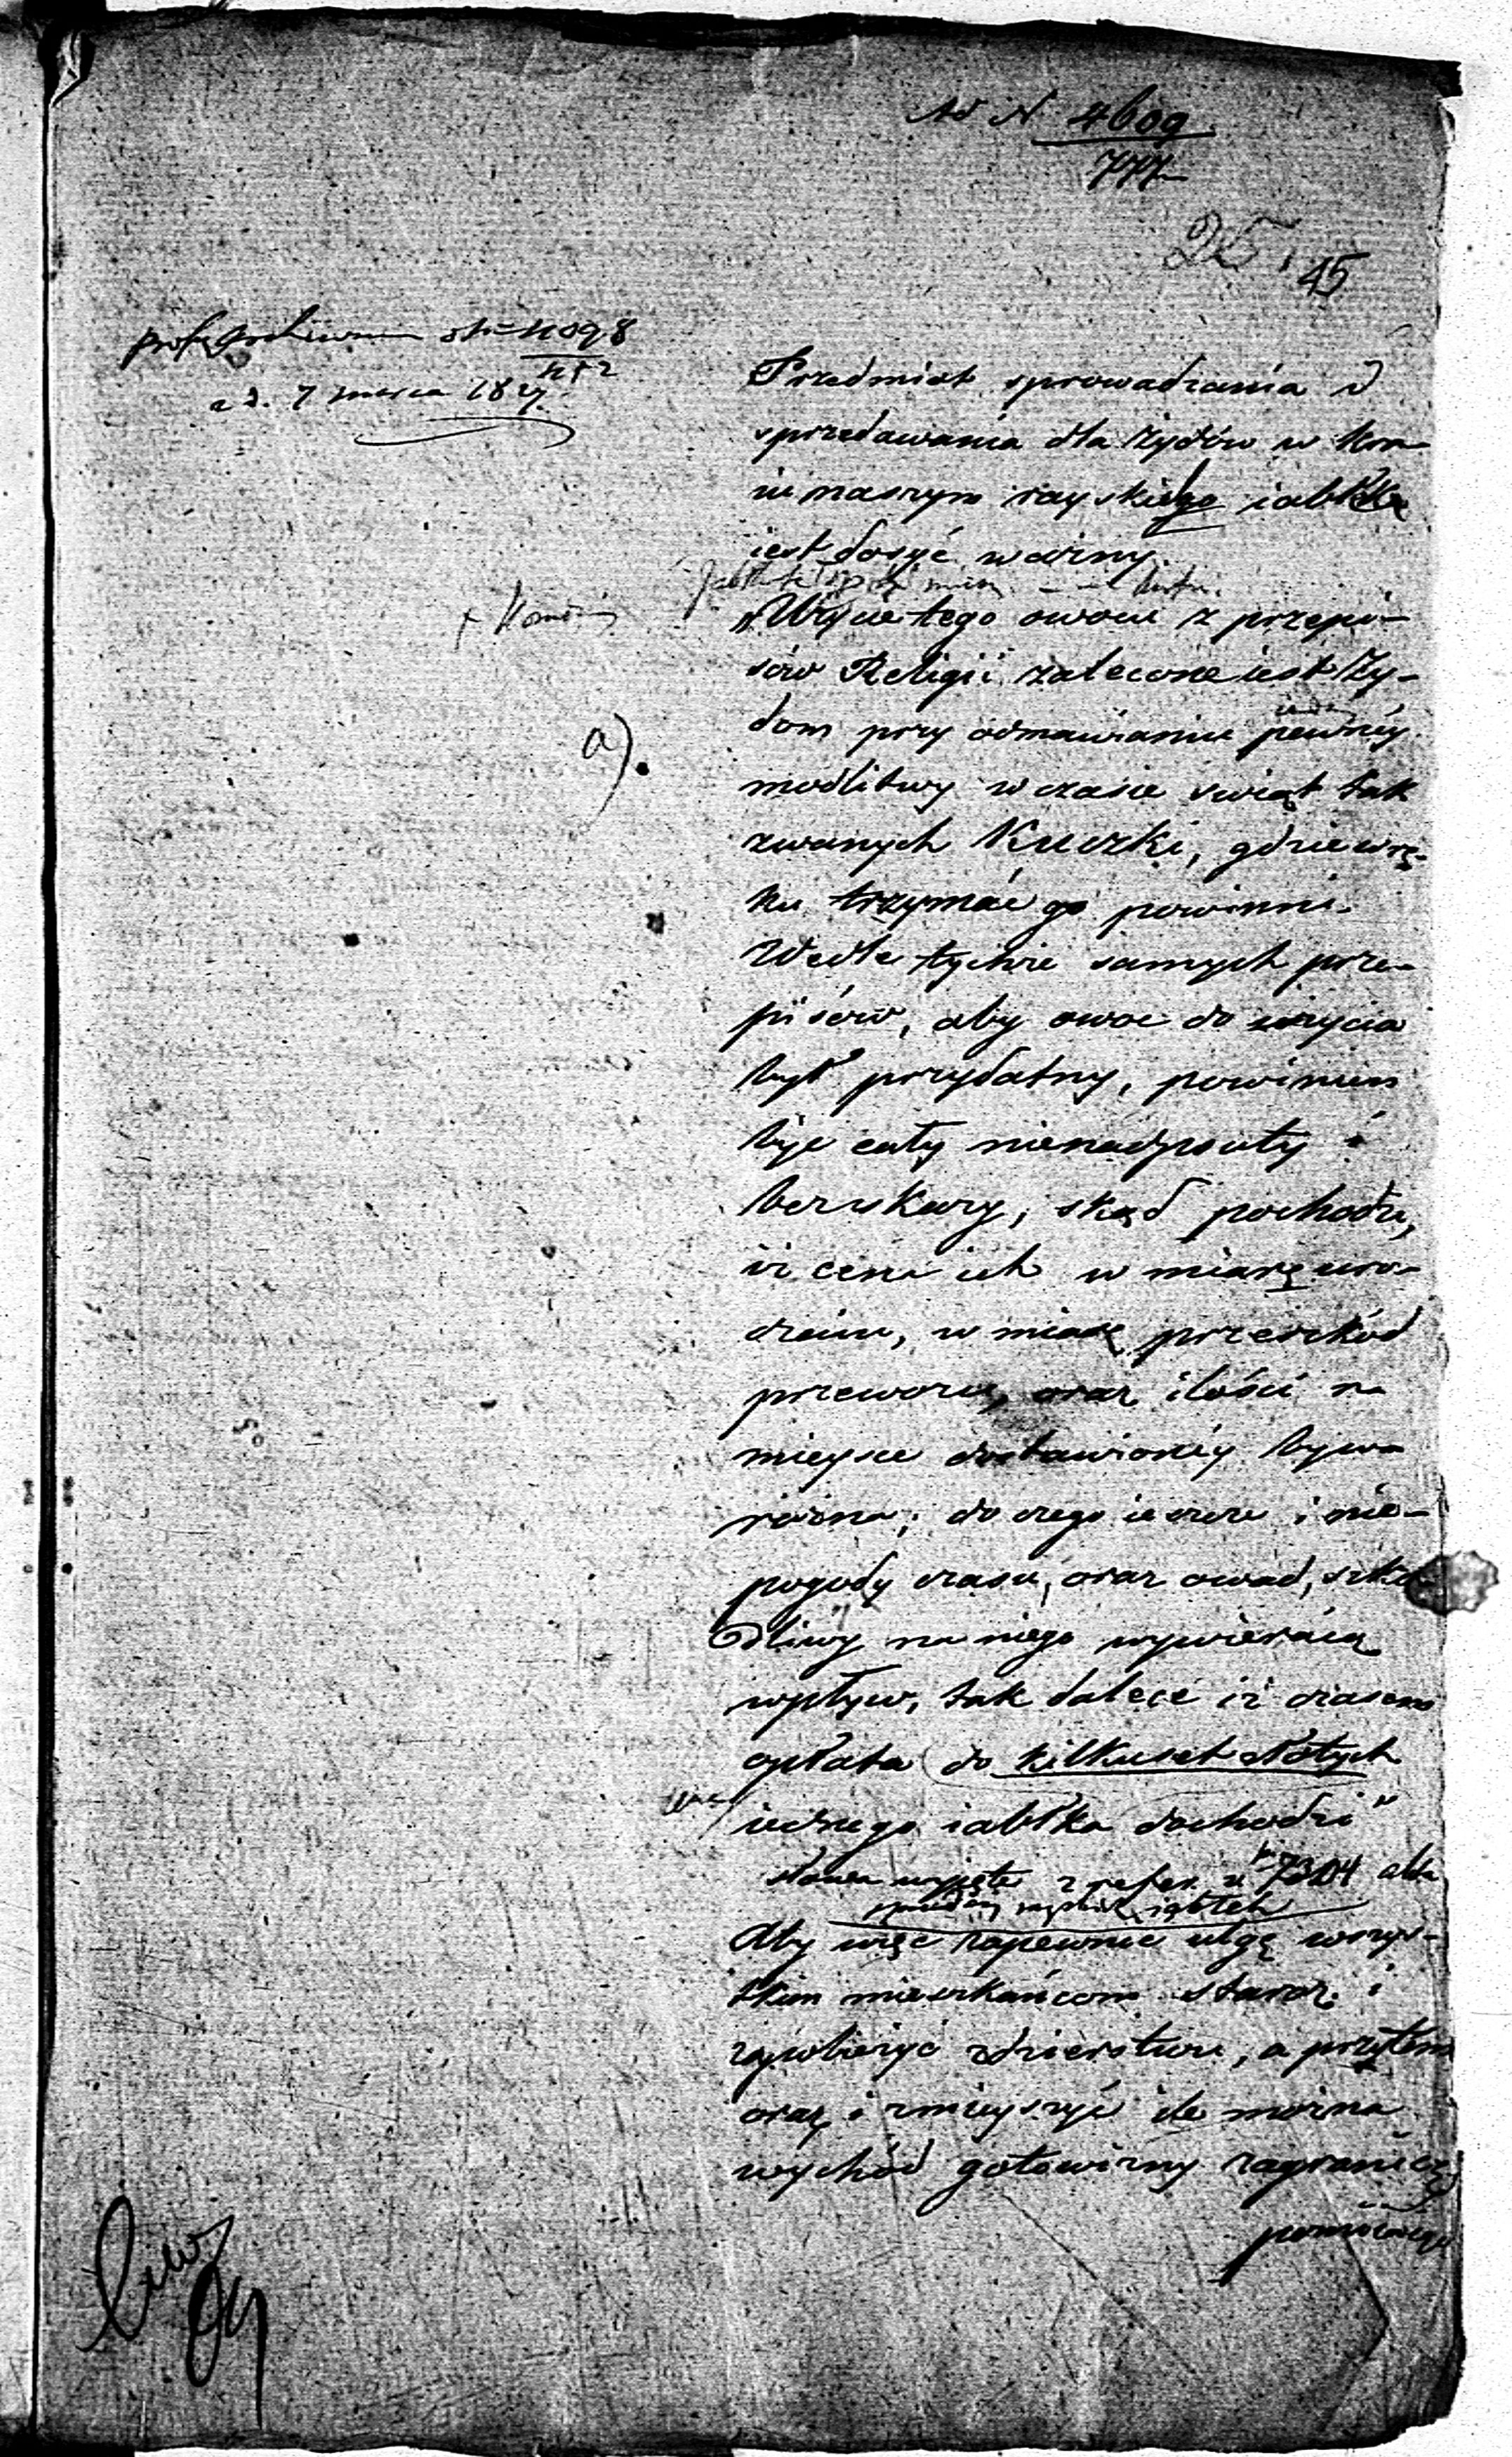 Ad N 4609
777
25
45
a d. 7 marca 1827.
Przedmiot sprowadzania i
sprzedawania dla żydów w kra-
iu naszym rayskiego iabłka
iest dosyć ważny.
„Użycie tego owocu z przepi-
sów Religii zalecone iest Ży-
dom przy odmawianiu pewnéy
modlitwy w czasie świąt tak
zwanych Kuczki, gdzie w rę-
ku trzymać go powinni.
Wedle tychże samych prze-
pisów, aby owoc do użycia
był przydatny, powinien
być cały nienadpsuty i
bez skazy, skąd pochodzi,
iż cena ich w miarę uro-
dzaiu, w miarę przeszkód
przewozu, oraz ilości na
mieysce dostawionéy bywa
różna; do czego ieszcze i nie-
pogody czasu, oraz owad, szko
dliwy na niego wywieraią
wpływ, tak dalece iż czasem
opłata do kilkuset złotych
iednego iabłka dochodzi"
słowa wyięte z refer. n. 7304
a).
Aby więc zapewnić ulgę wszys-
tkim mieszkańcom staroz. i
zapobieżyć zdzierstwu, a przytem
oraz i zmieyszyć ile można
wychód gotowizny zagranicę